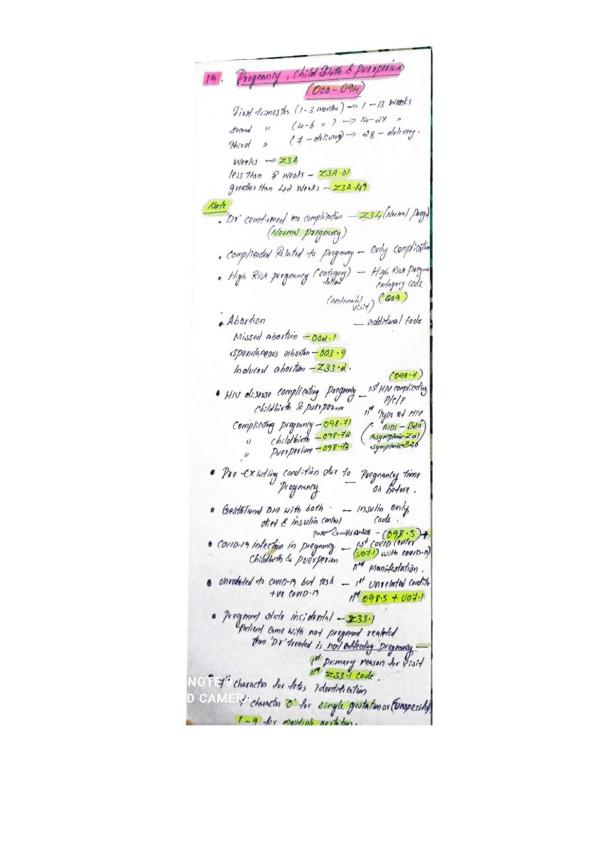 19. Pregnancy, child Birth & puerperium
(O00-O94)
First trimester (1-3 months) → 1-13 weeks
second " (4-6 ") → 14-27 "
Third " (7-delivery) → 28-delivery.
Weeks → Z3A
less than 8 weeks - Z3A.01
greater than 42 weeks - Z3A.49
Note
• Dr confirmed no complication - Z34 (Normal preg)
(Normal pregnancy)
• complicated Related to pregnancy - only complication
• High Risk pregnancy (category) - High Risk pregnan
category code
visit) (O09)
• Abortion - additional code
Missed abortion - O02.1
spontaneous abortion - O03.9
Induced abortion - Z33.2.
(O98.7)
• HIV disease complicating pregnancy - 1st HIV complicating
childbirth & puerperium P/C/P
IInd Type of HIV
Complicating pregnancy - O98.71 (AIDS - B20
" childbirth - O98.72 Asymptom-Z21)
" puerperium - O98.73 symptom-B20
• Pre-existing condition due to - Pregnancy time
pregnancy or before.
• Gestational DM with both - insulin only
diet & insulin control code.
(O98.5) +
• COVID-19 infection in pregnancy - 1st COVID
childbirth & puerperium (U07.1) with covid-19
IInd Manifestation.
• unrelated to covid-19 but test - 1st unrelated conditio
+ve covid-19 IInd O98.5 + U07.1
• Pregnant state incidental - Z33.1
Patient came with not pregnant related
than 'Dr' treated is not affecting pregnancy -
1st primary reason for visit
IInd Z33.1 code.
7th character for fetus identification
7th character '0' for single gestation or (unspecified
1-9 for multiple gestation.
NOTE
CAMERA